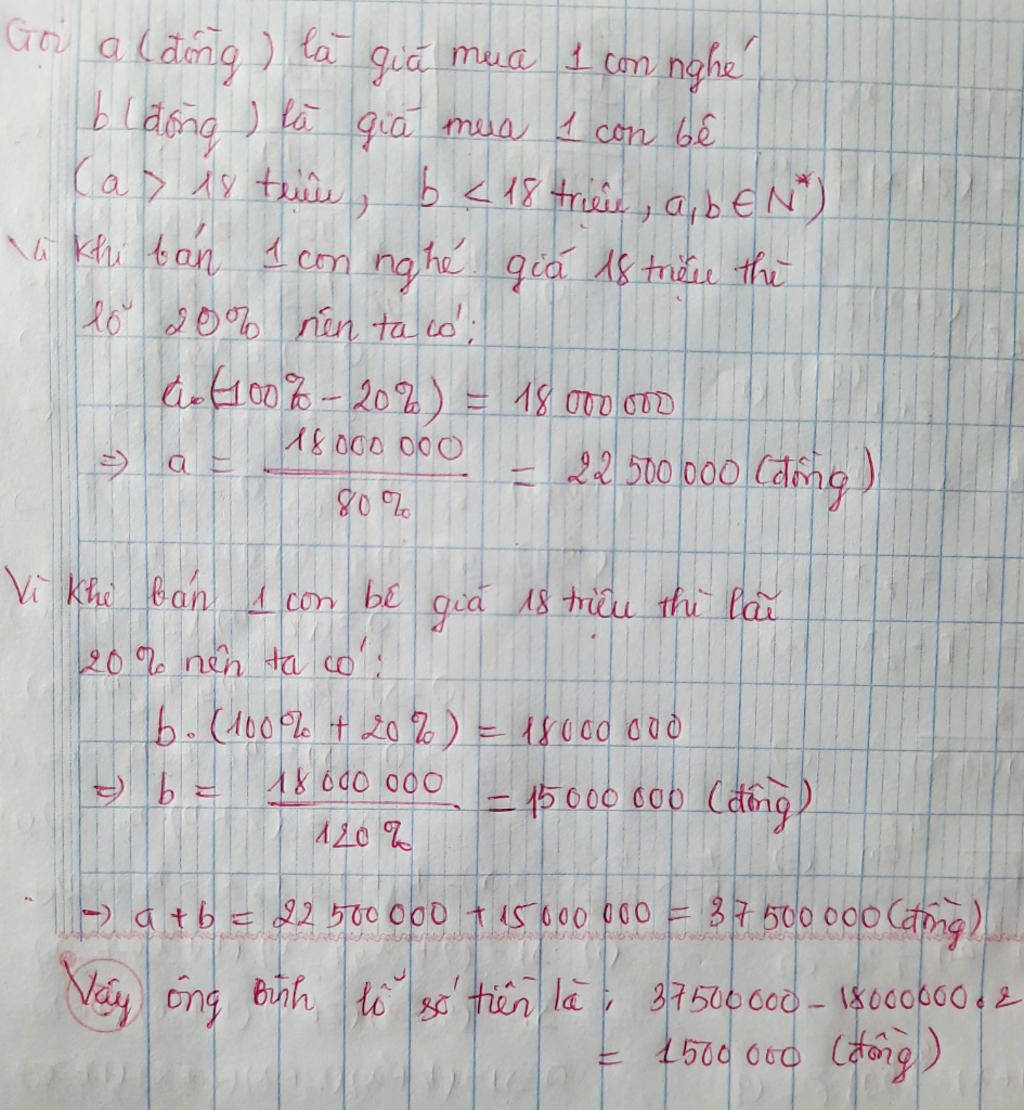 Gọi a (đồng) là giá mua 1 con nghé
b (đồng) là giá mua 1 con bê
(a > 18 triệu, b < 18 triệu, a, b ∈ N*)
Vì khi bán 1 con nghé giá 18 triệu thì
lỗ 20% nên ta có:
a.(100% - 20%) = 18 000 000
⇒ a = 18 000 000 / 80% = 22 500 000 (đồng)
Vì khi bán 1 con bê giá 18 triệu thì lãi
20% nên ta có:
b.(100% + 20%) = 18 000 000
⇒ b = 18 000 000 / 120% = 15 000 000 (đồng)
→ a + b = 22 500 000 + 15 000 000 = 37 500 000 (đồng)
Vậy ông Bình lỗ số tiền là: 37500000 - 18000000.2
= 1500 000 (đồng)